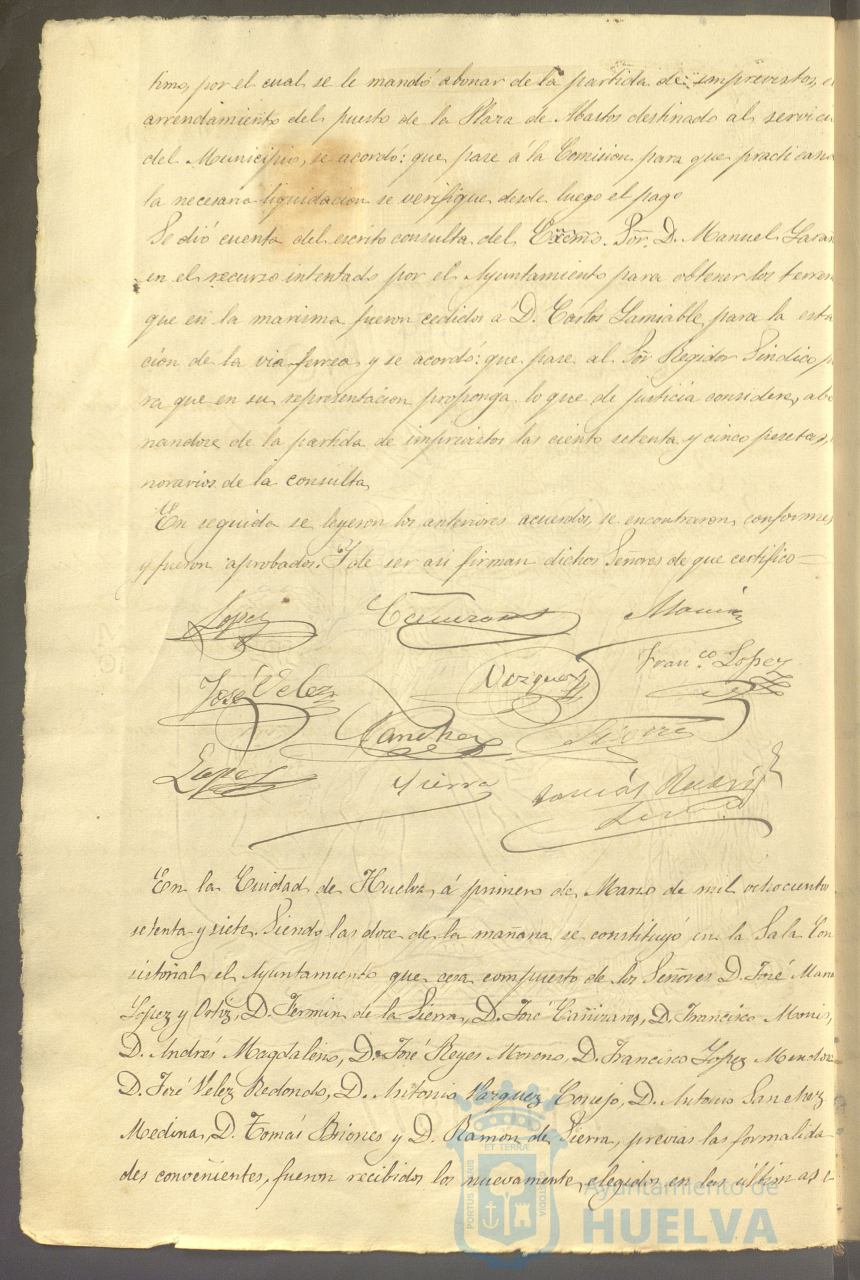 timo, por el cual se le mandó abonar de la partida de imprevistos, el
arrendamiento del puesto de la Plaza de Abastos destinado al servici
del Municipio, se acordó: que pase á la Comision para que practican
la necesaria liquidacion se verifique desde luego el pago
Se dió cuenta del escrito consulta del Excmo. Sõr. D. Manuel
en el recurso intentado por el Ayuntamiento para obtener los terren
que en la marisma fueron cedidos á D. Carlos Lamiable para la esta
cion de la via ferrea y se acordó: que pase al Sõr Regidor Sindico p
ra que en su representacion proponga lo que de justicia considere, abo
nandose de la partida de imprevistos las ciento setenta y cinco pesetas,
norarios de la consulta
En seguida se leyeron los anteriores acuerdos, se encontraron conformes
y fueron aprobados. Y de ser asi firman dichos Señores de que certifico =
Lopez Cañizares
José Velez Vazquez Franco. Lopez
Sanchez
Lopez Sierra Tomás
En la Ciudad de Huelva, á primero de Marzo de mil ochocientos
setenta y siete. Siendo las doce de la mañana se constituyó en la Sala Con
sistorial el Ayuntamiento que cesa compuesto de los Señores D. José Mari
Lopez y Ortiz, D. Fermin de la Sierra, D. José Cañizares, D. Francisco
D. Andrés Magdaleno, D. José Reyes Moreno, D. Francisco Lopez Mendoz
D. José Velez Redondo, D. Antonio Vazquez Conejo, D. Antonio Sanchez
Medina, D. Tomás Briones y D. Ramon de Sierra, previas las formalida
des convenientes, fueron recibidos los nuevamente elegidos en las últimas e
PORTUS MARIS ET TERRÆ CUSTODIA
Ayuntamiento de
HUELVA